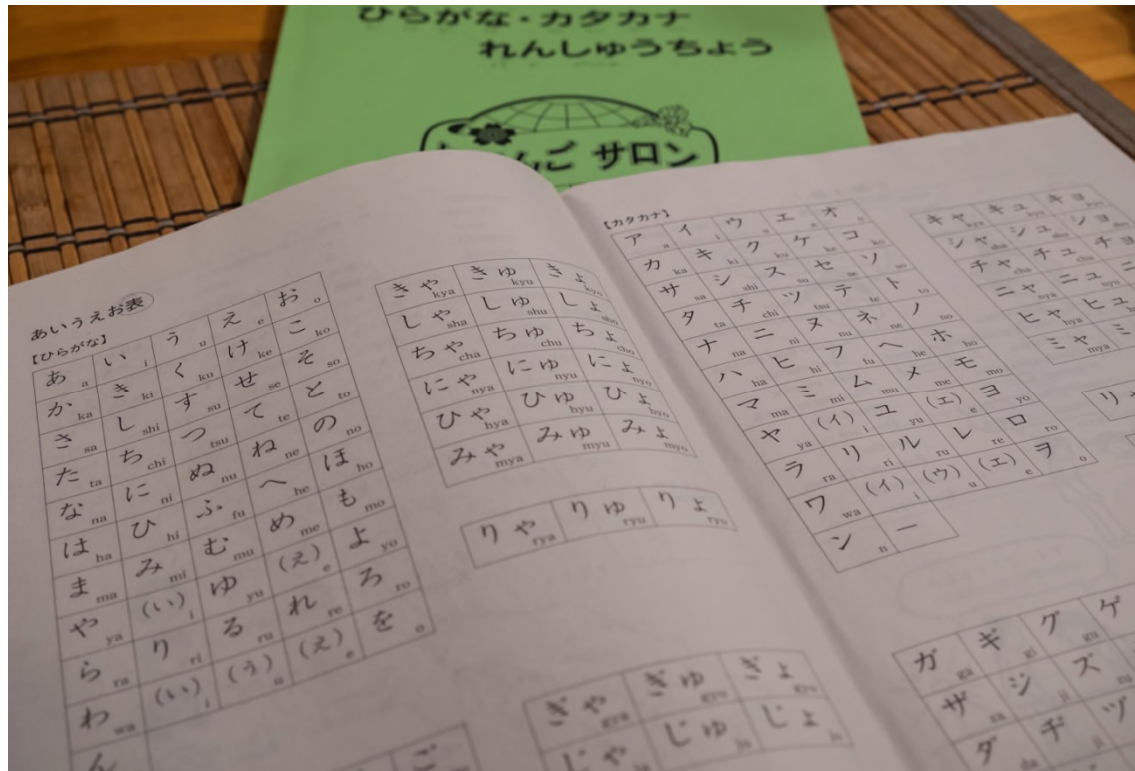 ひらがな・カタカナ
れんしゅうちょう
んご サロン
あいうえお表
【ひらがな】
あ a い i う u え e お o
か ka き ki く ku け ke こ ko
さ sa し shi す su せ se そ so
た ta ち chi つ tsu て te と to
な na に ni ぬ nu ね ne の no
は ha ひ hi ふ fu へ he ほ ho
ま ma み mi む mu め me も mo
や ya (い) i ゆ yu (え) e よ yo
ら ra り ri る ru れ re ろ ro
わ wa (い) i (う) u (え) e を o
ん
きゃ kya きゅ kyu きょ kyo
しゃ sha しゅ shu しょ sho
ちゃ cha ちゅ chu ちょ cho
にゃ nya にゅ nyu にょ nyo
ひゃ hya ひゅ hyu ひょ hyo
みゃ mya みゅ myu みょ myo
りゃ rya りゅ ryu りょ ryo
ご
ぎゃ gya ぎゅ gyu ぎょ gyo
じゃ じゅ ju じょ jo
【カタカナ】
ア a イ i ウ u エ e オ o
カ ka キ ki ク ku ケ ke コ ko
サ sa シ shi ス su セ se ソ so
タ ta チ chi ツ tsu テ te ト to
ナ na ニ ni ヌ nu ネ ne ノ no
ハ ha ヒ hi フ fu ヘ he ホ ho
マ ma ミ mi ム mu メ me モ mo
ヤ ya (イ) i ユ yu (エ) e ヨ yo
ラ ra リ ri ル ru レ re ロ ro
ワ wa (イ) i (ウ) u (エ) e ヲ o
ン n ー
キャ kya キュ kyu キョ kyo
シャ sha シュ shu ショ sho
チャ cha チュ chu チョ
ニャ nya ニュ nyu ニ
ヒャ hya ヒュ hyu ヒ
ミャ mya ミ
リャ
ガ ga ギ gi グ gu ゲ
ザ za ジ ji ズ zu
ダ da ヂ ji ヅ